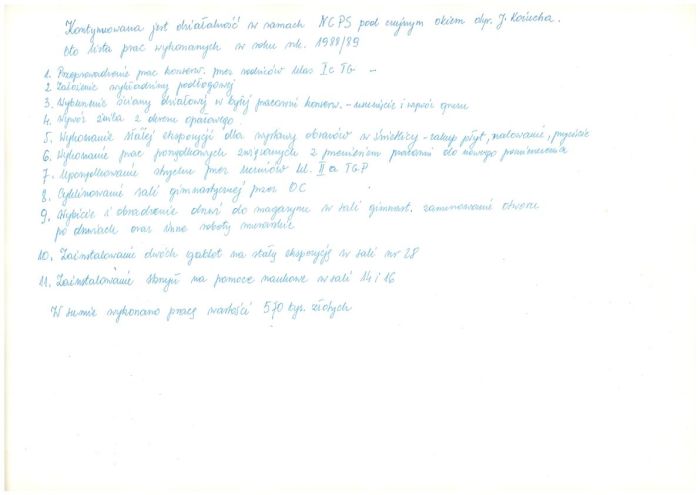 Kontynuowana jest działalność w ramach NCPS pod czujnym okiem dyr. J. Kosucha.
Oto lista prac wykonanych w roku szk. 1988/89
1. Przeprowadzenie prac konserw. przez rodziców klas I c TG –
2. Założenie wykładziny podłogowej
3. Wyburzenie ściany działowej w byłej pracowni konserw. - usunięcie i wywóz gruzu
4. Wywóz żużla z drzewa opałowego
5. Wykonanie stałej ekspozycji dla wystawy obrazów w świetlicy - zakup płyt, malowanie, przycięcie
6. Wykonanie prac porządkowych związanych z przeniesieniem pracowni do nowego pomieszczenia
7. Uporządkowanie strychu przez uczniów kl. II a TGP
8. Cyklinowanie sali gimnastycznej przez OC
9. Wybicie i obsadzenie drzwi do magazynu w sali gimnast. zamurowanie otworu
po drzwiach oraz inne roboty murarskie
10. Zainstalowanie dwóch gablot na stałą ekspozycję w sali nr 28
11. Zainstalowanie skrzyń na pomoce naukowe w sali 14 i 16
W sumie wykonano pracę wartości 570 tys. złotych